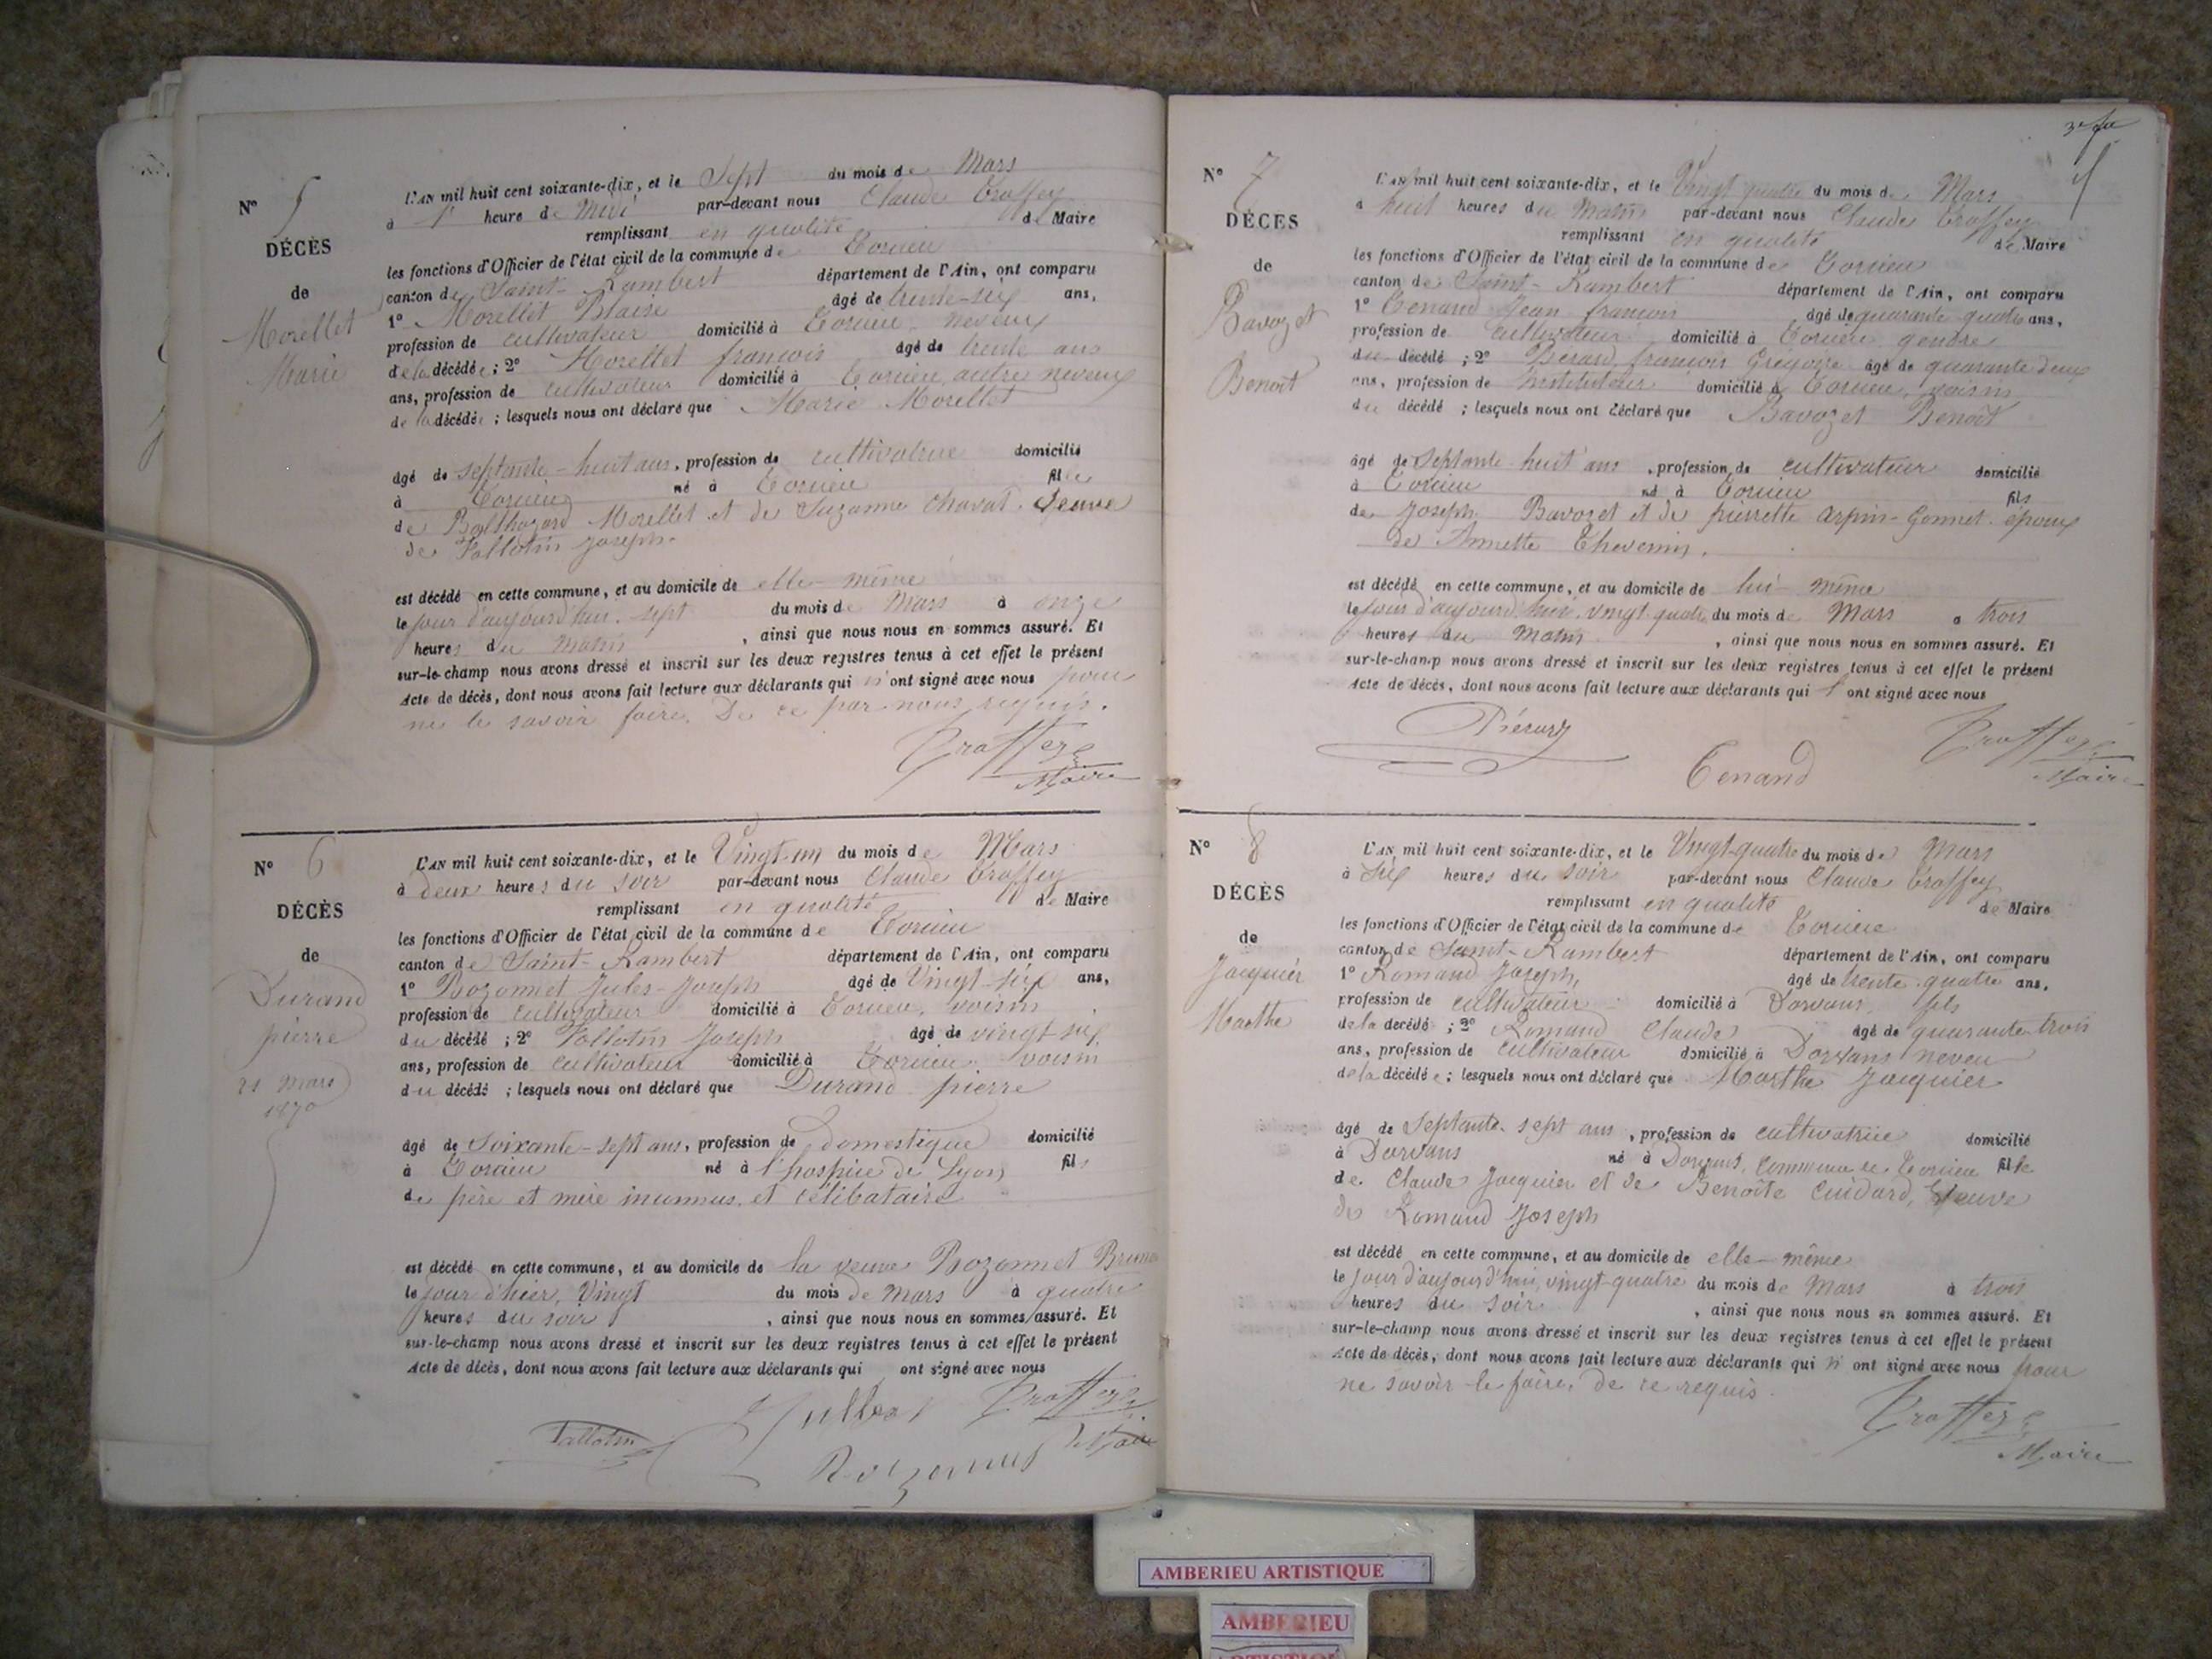 N° 5
DÉCÈS
de
Morellet
Marie
L'AN mil huit cent soixante-dix, et le Sept du mois de Mars
à 1 heure de Midi par-devant nous Claude Troffey
remplissant en qualité de Maire
les fonctions d'Officier de l'état civil de la commune de Torcieu
canton de Saint-Rambert département de l'Ain, ont comparu
1° Morellet Blaise âgé de trente-six ans,
profession de cultivateur domicilié à Torcieu, neveux
de la décédée ; 2° Morellet françois âgé de trente ans
ans, profession de cultivateur domicilié à Torcieu, autre neveux
de la décédée ; lesquels nous ont déclaré que Marie Morellet
âgé de septante-huit ans, profession de cultivatrice domicilié
à Torcieu né à Torcieu fille
de Balthazard Morellet et de Suzanne Chavat. Veuve
de Vallotin Joseph.
est décédé en cette commune, et au domicile de elle-même
le jour d'aujourd'hui, sept du mois de Mars à onze
heures du matin, ainsi que nous nous en sommes assuré. Et
sur-le-champ nous avons dressé et inscrit sur les deux registres tenus à cet effet le présent
Acte de décès, dont nous avons fait lecture aux déclarants qui n'ont signé avec nous pour
ne le savoir faire. De ce par nous requis.
Troffey
Maire
N° 6
DÉCÈS
de
Durand
pierre
21 Mars
1870
L'AN mil huit cent soixante-dix, et le Vingt-un du mois de Mars
à deux heures du soir par-devant nous Claude Troffey
remplissant en qualité de Maire
les fonctions d'Officier de l'état civil de la commune de Torcieu
canton de Saint-Rambert département de l'Ain, ont comparu
1° Bozonnet Jules-Joseph âgé de Vingt-six ans,
profession de cultivateur domicilié à Torcieu, voisin
du décédé ; 2° Vallotin Joseph âgé de vingt six
ans, profession de cultivateur domicilié à Torcieu, voisin
du décédé ; lesquels nous ont déclaré que Durand pierre
âgé de Soixante-sept ans, profession de domestique domicilié
à Torcieu né à l'hospice de Lyon fils
de père et mère inconnus, et célibataire
est décédé en cette commune, et au domicile de la veuve Bozonnet
le jour d'hier, Vingt du mois de Mars à quatre
heures du soir, ainsi que nous nous en sommes assuré. Et
sur-le-champ nous avons dressé et inscrit sur les deux registres tenus à cet effet le présent
Acte de décès, dont nous avons fait lecture aux déclarants qui ont signé avec nous
Troffey
Maire
N° 7
DÉCÈS
de
Bavozet
Benoit
L'AN mil huit cent soixante-dix, et le Vingt quatre du mois de Mars
à huit heures du Matin par-devant nous Claude Troffey
remplissant en qualité de Maire
les fonctions d'Officier de l'état civil de la commune de Torcieu
canton de Saint-Rambert département de l'Ain, ont comparu
1° Tenand Jean françois âgé de quarante quatre ans,
profession de cultivateur domicilié à Torcieu, gendre
du décédé ; 2° Berard françois Grégoire âgé de quarante deux
ans, profession de Instituteur domicilié à Torcieu, voisin
du décédé ; lesquels nous ont déclaré que Bavozet Benoît
âgé de Septante-huit ans, profession de cultivateur domicilié
à Torcieu né à Torcieu fils
de Joseph Bavozet et de pierrette Arpin-Gonnet. époux
de Annette Thevenin.
est décédé en cette commune, et au domicile de lui-même
le jour d'aujourd'hui, vingt-quatre du mois de Mars à trois
heures du Matin, ainsi que nous nous en sommes assuré. Et
sur-le-champ nous avons dressé et inscrit sur les deux registres tenus à cet effet le présent
Acte de décès, dont nous avons fait lecture aux déclarants qui ont signé avec nous
Tenand
Troffey
Maire
N° 8
DÉCÈS
de
Jacquier
Marthe
L'AN mil huit cent soixante-dix, et le Vingt-quatre du mois de Mars
à Six heures du soir par-devant nous Claude Troffey
remplissant en qualité de Maire
les fonctions d'Officier de l'état civil de la commune de Torcieu
canton de Saint-Rambert département de l'Ain, ont comparu
1° Romand Joseph, âgé de trente-quatre ans,
profession de cultivateur domicilié à Dorvans, fils
de la décédé ; 2° Romand Claude âgé de quarante-trois
ans, profession de cultivateur domicilié à Dorvans neveu
de la décédée ; lesquels nous ont déclaré que Marthe Jacquier
âgé de Septante-sept ans, profession de cultivatrice domicilié
à Dorvans né à Dorvans, Commune de Torcieu fille
de Claude Jacquier et de Benoîte Cuidard, Veuve
de Romand Joseph
est décédé en cette commune, et au domicile de elle-même
le jour d'aujourd'hui, vingt-quatre du mois de Mars à trois
heures du soir, ainsi que nous nous en sommes assuré. Et
sur-le-champ nous avons dressé et inscrit sur les deux registres tenus à cet effet le présent
Acte de décès, dont nous avons fait lecture aux déclarants qui n'ont signé avec nous pour
ne savoir le faire, de ce requis.
Troffey
Maire
AMBERIEU ARTISTIQUE
AMBERIEU
ARTISTIQUE